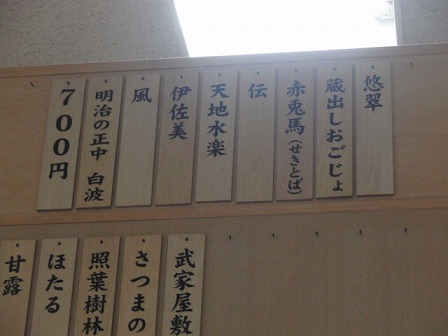 悠翠
蔵出しおごじょ
赤兎馬(せきとば)
伝
天地水楽
伊佐美
風
明治の正中 白波
700円
武家屋敷
さつまの
照葉樹林
ほたる
甘露